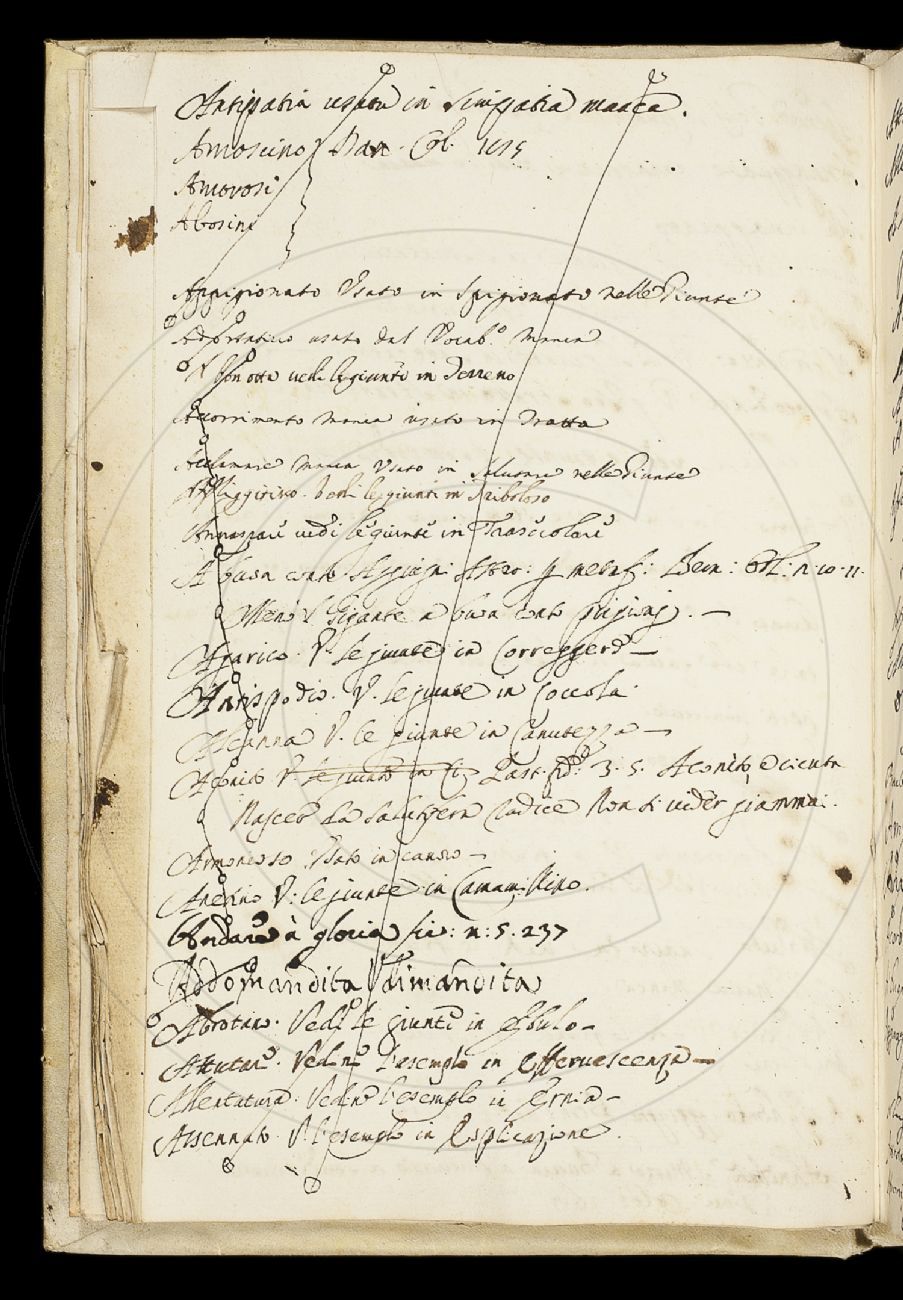 Antipatia usata in Simpatia manca.
Amoscino Dav. Col. 195
Amorosi
Abosini
Appigionato Usato in Spigionato nelle Giunte
usato dal Vocab.o manca
vedi le giunte in Terreno
Accorrimento manca usato in Tratta
Acclamare manca Usato in Salutare nelle Giunte
Affliggitivo. Vedi le giunti in Triboloso
Annaspare vedi le giunte in Trasciolare
A buon conto Aggiugn: : Bern: Orl: n. 10. 11.
Meno l Gigante a buon conto prigione. —
Agarico. V. le giunte in Correggere —
Antispodio. V. le giunte in Coccola.
Alcanna V. le giunte in Canutezza —
Aconito V. le giunte in Past. fid: 3. 5. Aconito, e cicuta
Nascer da salutifera radice Non si vider giammai:
Armonioso Usato in canoro —
Anetino V: le giunte in Camamillino.
Andare à gloria : n: 5. 237
Addomandita V dimandita
Abrotano. Vedi le giunte in Ebulo —
Attutare. Vedine l'esemplo in Effervescenza —
Allentatura. Vedine l'esemplo in Ernia —
Assennato. V. l'esemplo in Esplicazione.